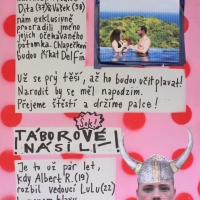 Dita (37) & Vašek (38)
nám exkluzivně
prozradili jméno
jejich očekávaného
potomka. Chlapečkovi
budou říkat Delfín
Už se prý těší, až ho budou učit plavat!
Narodit by se měl napodzim.
Přejeme štěstí a držíme palce!
Šok!
TÁBOROVÉ
NÁSILÍ!
Je to už pár let,
kdy Albert R. (19)
rozbil vedoucí Lulu (22)